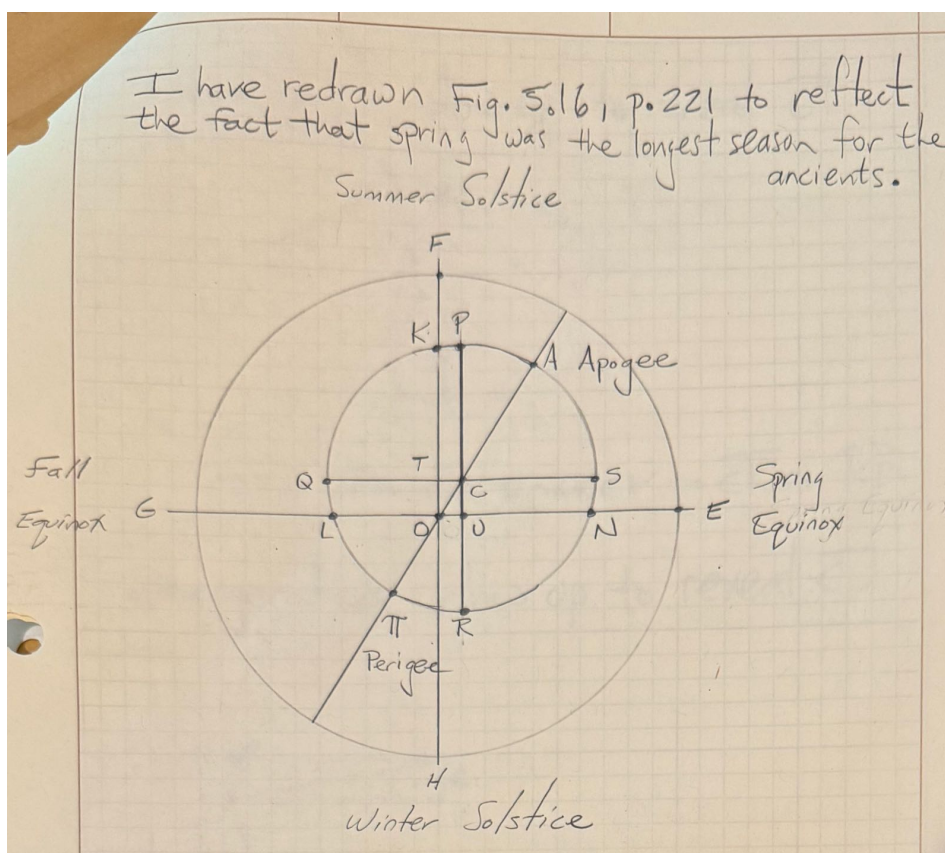 I have redrawn Fig. 5.16, p. 221 to reflect
the fact that spring was the longest season for the
ancients.
Summer Solstice
F
K P
A Apogee
T
Q C S
Fall Spring
G L O U N E
Equinox Equinox
π R
Perigee
H
Winter Solstice